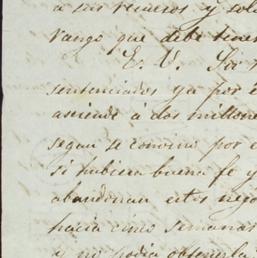 a sus recursos y sol
rango que debe tener
E. V. Sir
sentenciados ya por e
asciende á dos millone
segun se convino por e
si hubiera buena fe y
abandonan estos nego
hacia cinco semanas
a no podia obtenerla